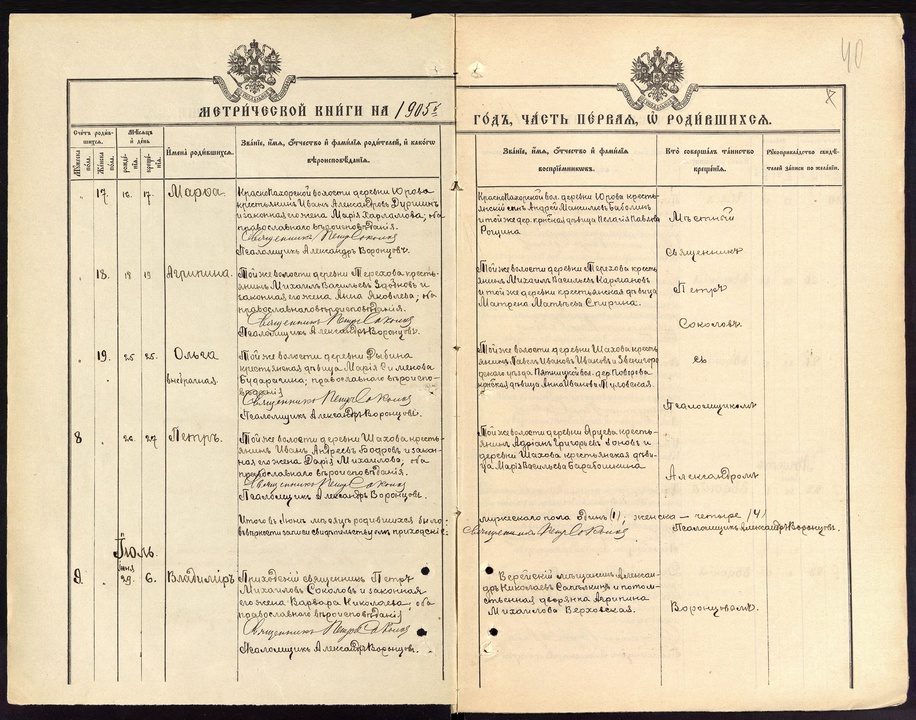 40
МЕТРИЧЕСКОЙ КНИГИ НА 1905й
ГОДЪ, ЧАСТЬ ПЕРВАЯ, Ѡ РОДИВШИХСЯ.
Счетъ родив-
шихся.
Мужеска пола.
Женска пола.
Мѣсяцъ
и день
рожде-
нія.
креще-
нія.
Имена родившихся.
Званіе, имя, отчество и фамилія родителей, и какого
вѣроисповѣданія.
Званіе, имя, отчество и фамилія
воспріемниковъ.
Кто совершалъ таинство
крещенія.
Рукоприкладство свидѣ-
телей записи по желанію.
17. 16. 17. Марѳа.
Краснопахорской волости деревни Юрова
крестьянинъ Иванъ Александровъ
и законная его жена Марія Харламова; оба
православнаго вѣроисповѣданія.
Священникъ Петръ Соколовъ
Псаломщикъ Александръ Воронцовъ.
Краснопахорской вол. деревни Юрова кресть-
янскій сынъ Андрей Максимовъ
и той же дер. крестьянская дѣвица Пелагія Павлова
Рощина
18. 19 19 Агрипина.
Той же волости деревни Терехова кресть-
янинъ Михаилъ Васильевъ Здоновъ и
законная его жена Анна Яковлева; оба
православнаго вѣроисповѣданія.
Священникъ Петръ Соколовъ
Псаломщикъ Александръ Воронцовъ.
Той же волости деревни Терехова кресть-
янинъ Михаилъ Васильевъ Кармановъ
и той же деревни крестьянская дѣвица
Матрена Матвѣева Спирина.
19. 25 25. Ольга
внѣбрачная.
Той же волости деревни Рыбина
крестьянская дѣвица Марія Симеонова
Бударагина; православнаго вѣроиспо-
вѣданія
Священникъ Петръ Соколовъ
Псаломщикъ Александръ Воронцовъ.
Той же волости деревни Шахова кресть-
янинъ Павелъ Ивановъ Ивановъ и Звенигород-
скаго уѣзда Пятницкой вол. дер.
крестьянская дѣвица Анна Иванова
8 26. 27 Петръ.
Той же волости деревни Шахова кресть-
янинъ Иванъ Андреевъ Бодровъ и закон-
ная его жена Дарія Михаилова; оба
православнаго вѣроисповѣданія.
Священникъ Петръ Соколовъ
Псаломщикъ Александръ Воронцовъ.
Той же волости деревни Арцева кресть-
янинъ Адріанъ Григорьевъ Іоновъ и
деревни Шахова крестьянская дѣви-
ца Марія Васильева Барабошкина
Итого въ Іюнѣ мѣсяцѣ родившихся было:
мужескаго пола одинъ (1); женска — четыре (4)
вѣрности записи свидѣтельствуемъ приходскіе:
Священникъ Петръ Соколовъ
Псаломщикъ Александръ Воронцовъ.
Іюль.
Іюня
9. 29. 6. Владиміръ
Приходскій священникъ Петръ
Михаиловъ Соколовъ и законная
его жена Варвара Николаева; оба
православнаго вѣроисповѣданія
Священникъ Петръ Соколовъ
Псаломщикъ Александръ Воронцовъ.
Верейскій мѣщанинъ Алексан-
дръ Николаевъ и потом-
ственная дворянка Агрипина
Михаилова Верховская.
Мѣстный
священникъ
Петръ
Соколовъ
съ
Псаломщикомъ
Александромъ
Воронцовымъ.